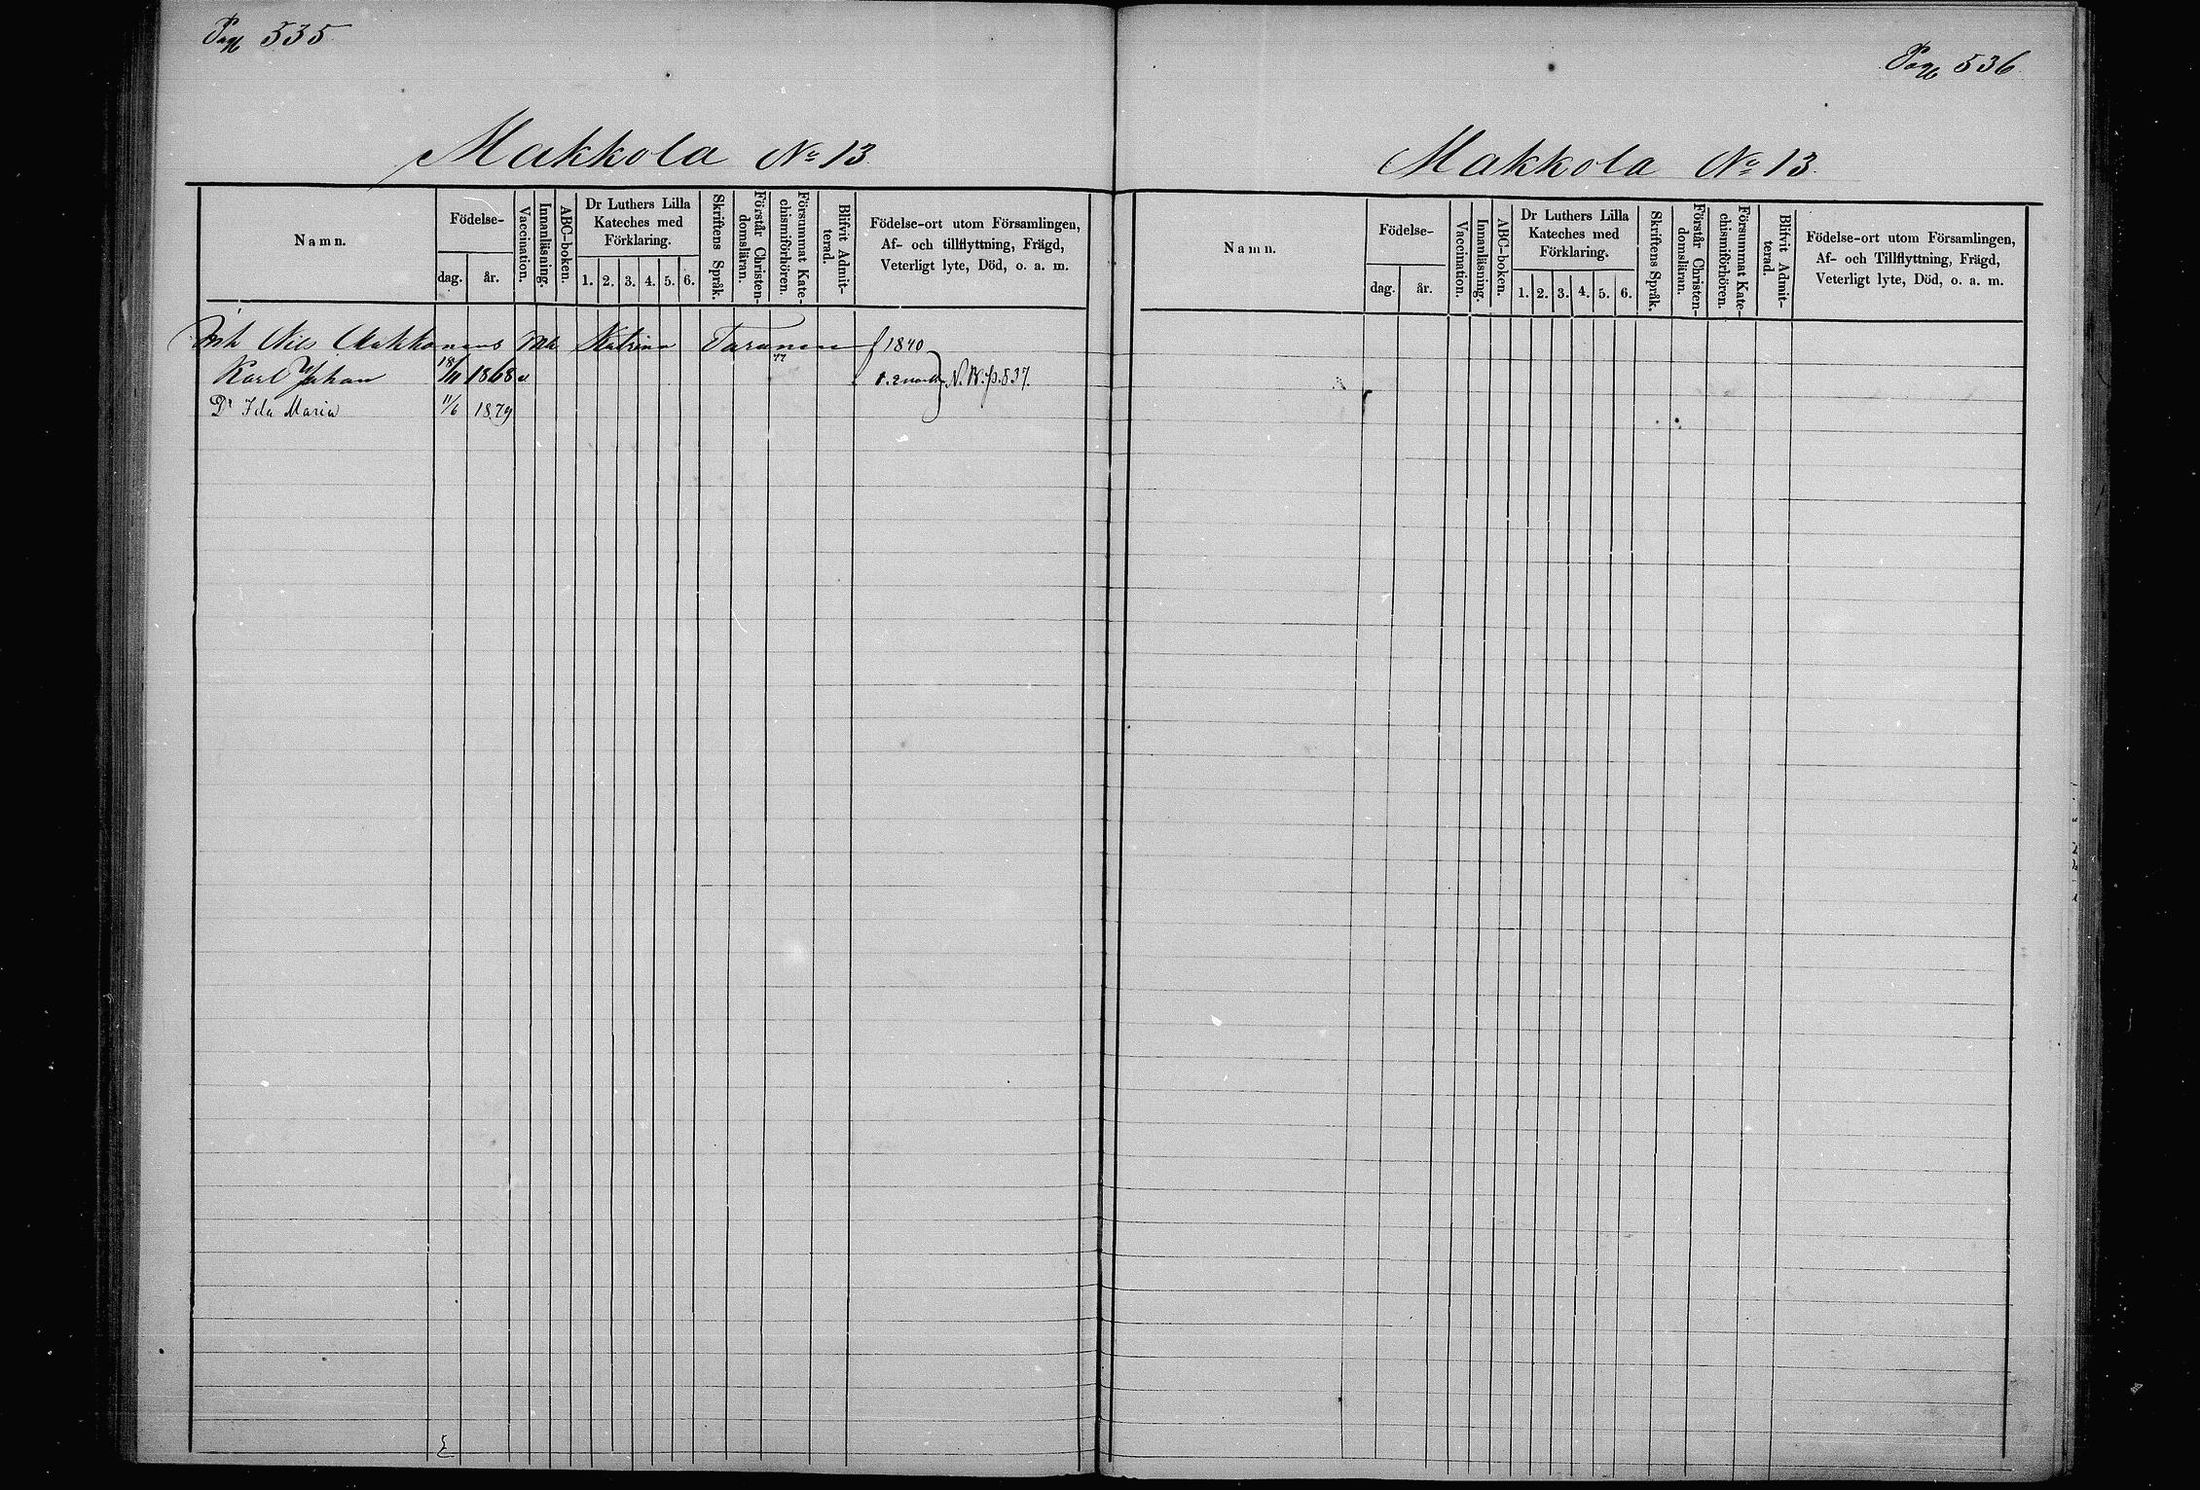 Pag 535
Makkola No 13
Namn.
Födelse-
dag.
år.
Vaccination.
Innanläsning.
ABC-boken.
Dr Luthers Lilla
Kateches med
Förklaring.
1. 2. 3. 4. 5. 6.
Skriftens Språk.
Förstår Christen-
domsläran.
Försummat Kate-
chismiförhören.
Blifvit Admit-
terad.
Födelse-ort utom Församlingen,
Af- och tillflyttning, Frägd,
Veterligt lyte, Död, o. a. m.
Nils Makkonens Katrina Taranen f 1840
Karl Johan 18/11 1868 v N. B. p. 537.
Dr Ida Maria 11/6 1879
Pag 536
Makkola No 13
Namn.
Födelse-
dag.
år.
Vaccination.
Innanläsning.
ABC-boken.
Dr Luthers Lilla
Kateches med
Förklaring.
1. 2. 3. 4. 5. 6.
Skriftens Språk.
Förstår Christen-
domsläran.
Försummat Kate-
chismiförhören.
Blifvit Admit-
terad.
Födelse-ort utom Församlingen,
Af- och Tillflyttning, Frägd,
Veterligt lyte, Död, o. a. m.